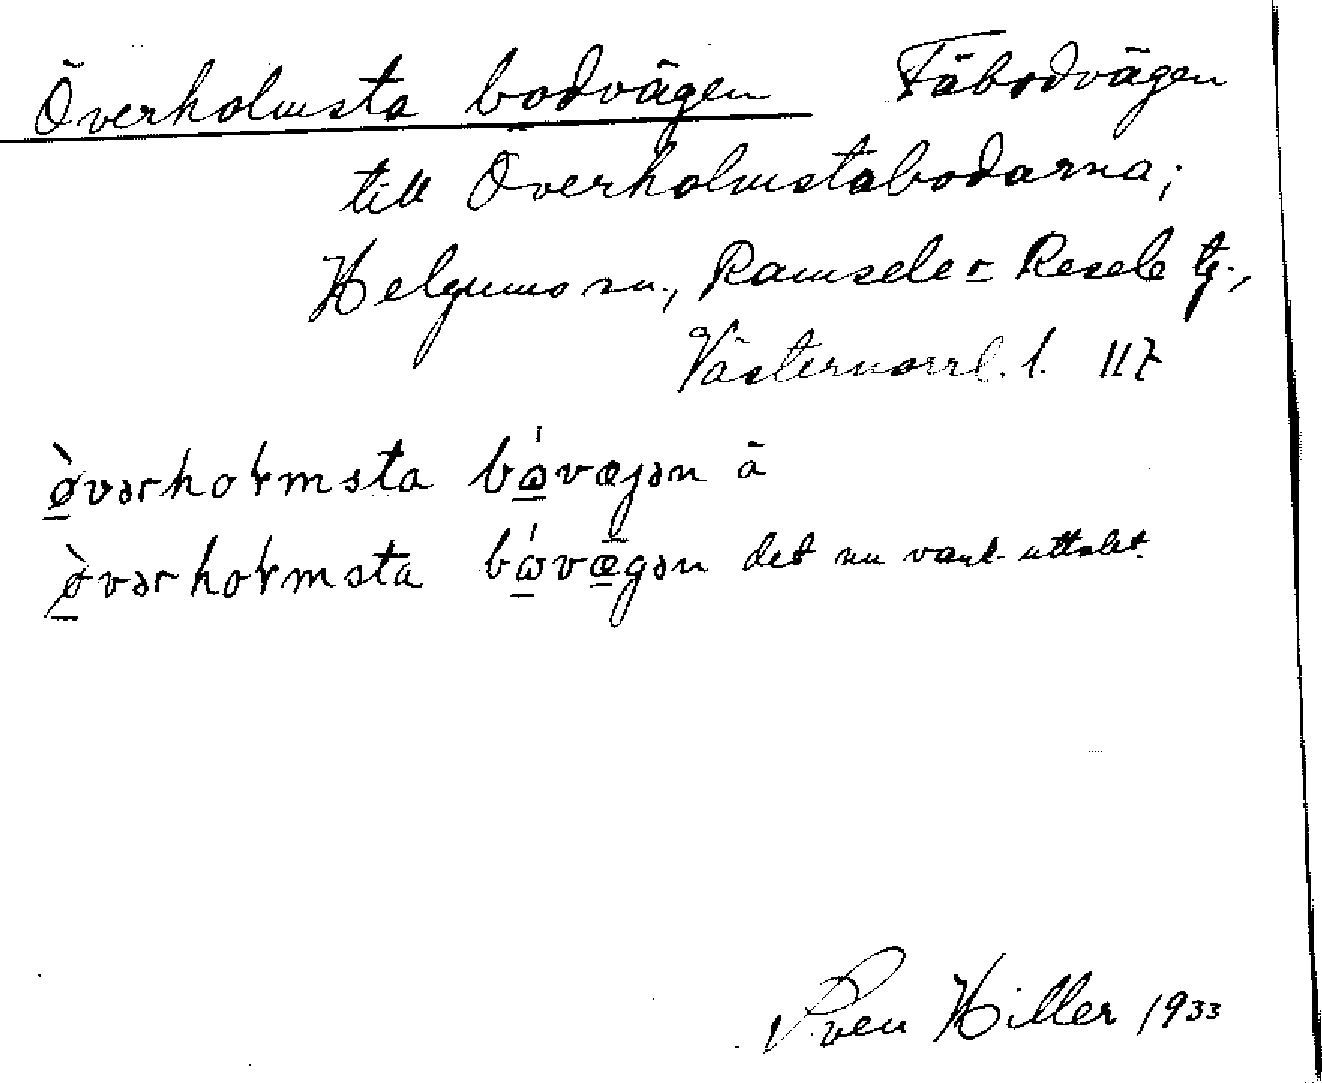 Överholmsta bodvägen Fäbodvägen
till Överholmstabodarna;
Helgums sn., Ramsele o Resele tg.,
Västernorrl. l. 117
ø̀vərhoɽmsta bώvæjən ä
ø̀vərhoɽmsta bώvæ̅gən det nu vanl. uttalet.
Sven Hiller 1933